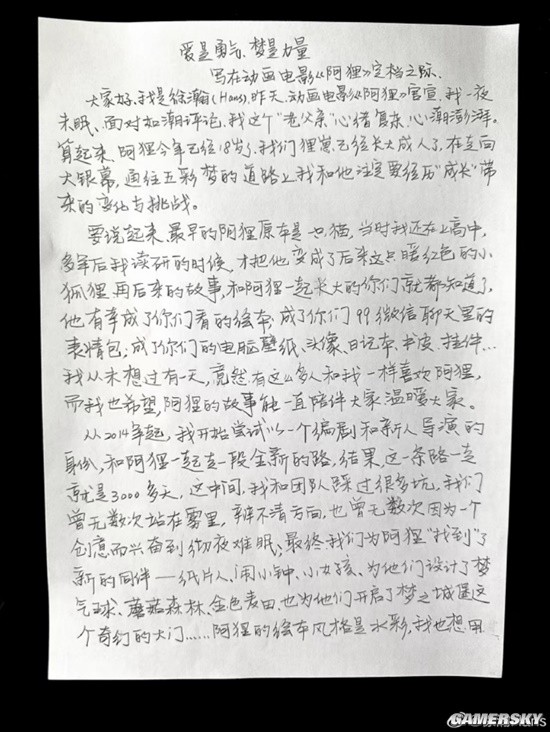 爱是勇气、梦是力量
写在动画电影《阿狸》定档之际.
大家好、我是徐瀚(Hans),昨天,动画电影《阿狸》官宣,我一夜
未眠、面对如潮评论,我这个“老父亲”心绪复杂、心潮澎湃。
算起来、阿狸今年已经18岁了,我们狸崽已经长大成人了.在走向
大银幕,通往五彩梦的道路上我和他注定要经历“成长”带
来的变化与挑战。
要说起来、最早的阿狸原本是只猫,当时我还在上高中,
多年后我读研的时候,才把他变成了后来这只暖红色的小
狐狸,再后来的故事,和阿狸一起长大的你们就都知道了,
他有幸成了你们看的绘本,成了你们QQ微信聊天里的
表情包,成了你们的电脑壁纸、头像、日记本、书皮、挂件…
我从未想过有一天,竟然有这么多人和我一样喜欢阿狸,
而我也希望,阿狸的故事能一直陪伴大家、温暖大家。
从2014年起,我开始尝试以一个编剧和新人导演的
身份,和阿狸一起走一段全新的路,结果,这一条路一走
就是3000多天,这中间,我和团队踩过很多坑,我们
曾无数次站在雾里,辨不清方向,也曾无数次因为一个
创意而兴奋到彻夜难眠、最终我们为阿狸“找到”了
新的同伴——纸片人、闹小钟、小女孩、为他们设计了梦
气球、蘑菇森林、金色麦田,也为他们开启了梦之城堡这
个奇幻的大门……阿狸的绘本风格是水彩,我也想用
GAMERSKY